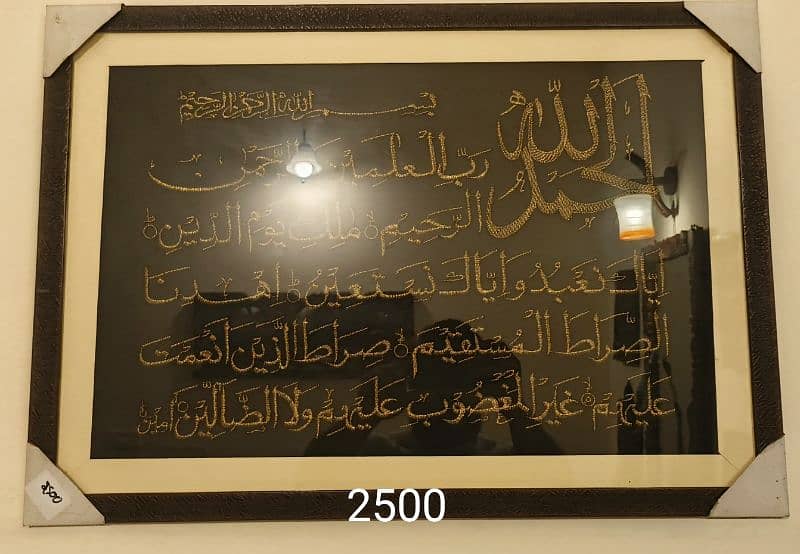 بسم الله الرحمن الرحيم
الحمد لله
رَبِّ الْعٰلَمِيْنَ الرَّحْمٰنِ
الرَّحِيْمِ مٰلِكِ يَوْمِ الدِّيْنِ
اِيَّاكَ نَعْبُدُ وَاِيَّاكَ نَسْتَعِيْنُ اِهْدِنَا
الصِّرَاطَ الْمُسْتَقِيْمَ صِرَاطَ الَّذِيْنَ اَنْعَمْتَ
عَلَيْهِمْ غَيْرِ الْمَغْضُوْبِ عَلَيْهِمْ وَلَا الضَّآلِّيْنَ اٰمين
2500
2500